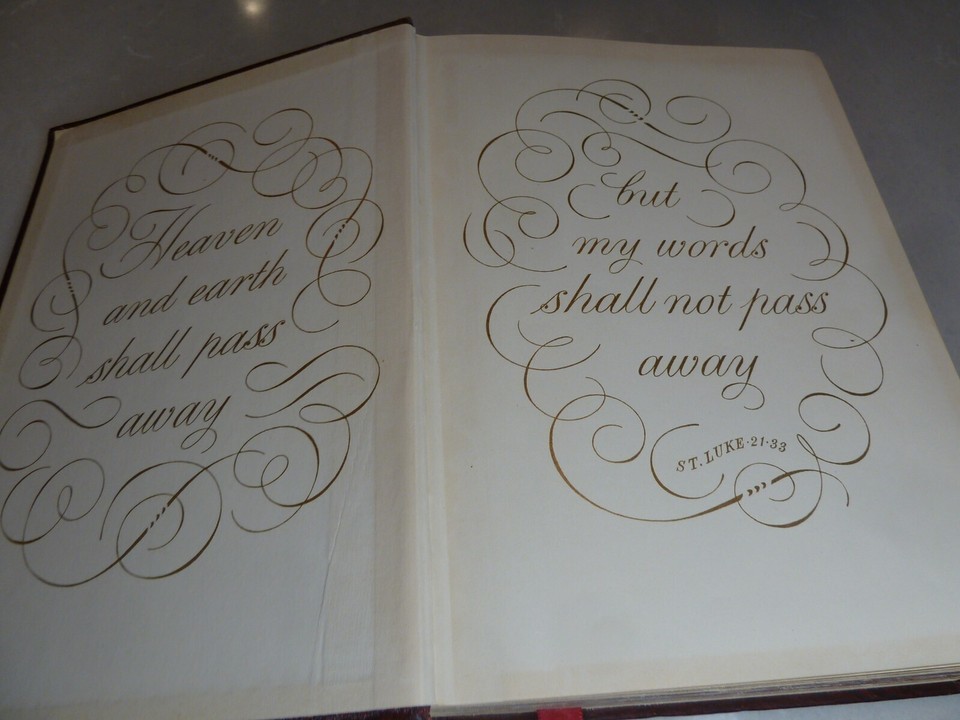 Heaven
and earth
shall pass
away
but
my words
shall not pass
away
ST. LUKE·21·33